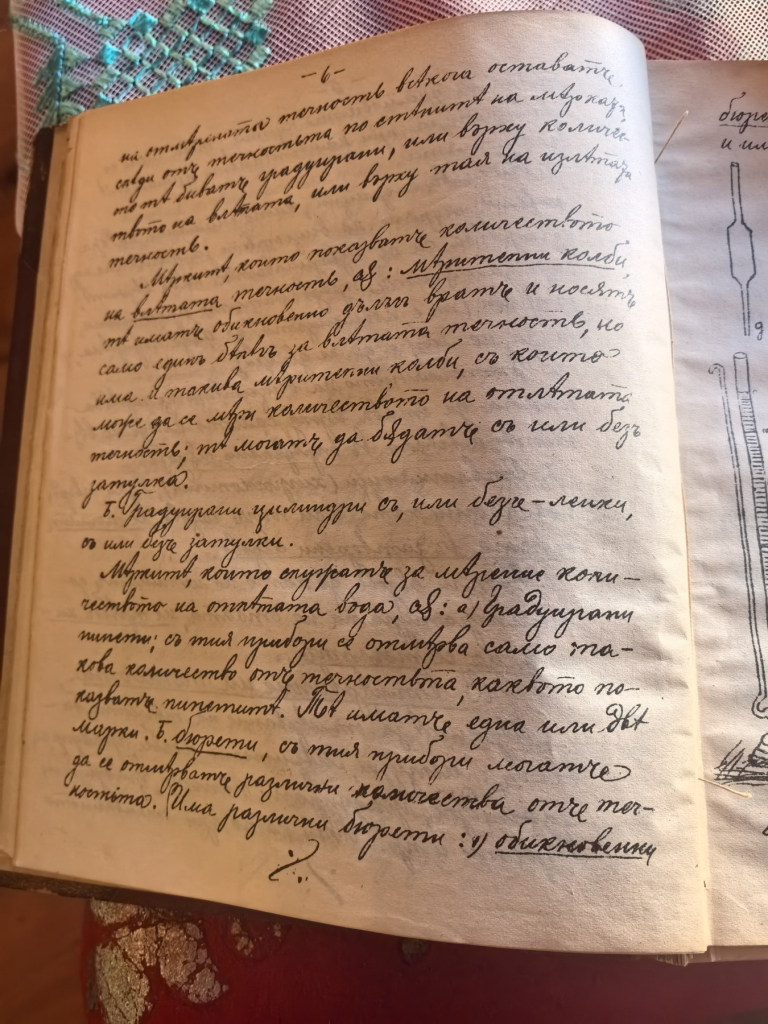 -6-
на отмѣренната течность всѣкога оставатъ
слѣди отъ течностьта по стѣнитѣ на
то тѣ биватъ градуирани, или върху количес-
твото на влѣтата, или върху тая на излѣтата
течность.
Мѣркитѣ, които показватъ количеството
на влѣтата течность, сѫ: мѣрителни колби,
тѣ иматъ обикновенно дълъгъ вратъ и носятъ
само единъ бѣлѣгъ за влѣтата течность, но
има и такива мѣрителни колби, съ които
може да се мѣри количеството на отлѣтата
течность; тѣ могатъ да бѫдатъ съ или безъ
затулка.
Б. Градуирани цилиндри съ, или безъ-лейки,
съ или безъ затулки.
Мѣркитѣ, които служатъ за мѣрение коли-
чеството на отлѣтата вода, сѫ: а) Градуирани
пипети; съ тия прибори се отмѣрва само та-
кова количество отъ течностьта, каквото по-
казватъ пипетитѣ. Тѣ иматъ една или двѣ
марки. Б. бюрети, съ тия прибори могатъ
да се отмѣрватъ различни количества отъ теч-
ностьта. (Има различни бюрети: 1) обикновенни
./.
и